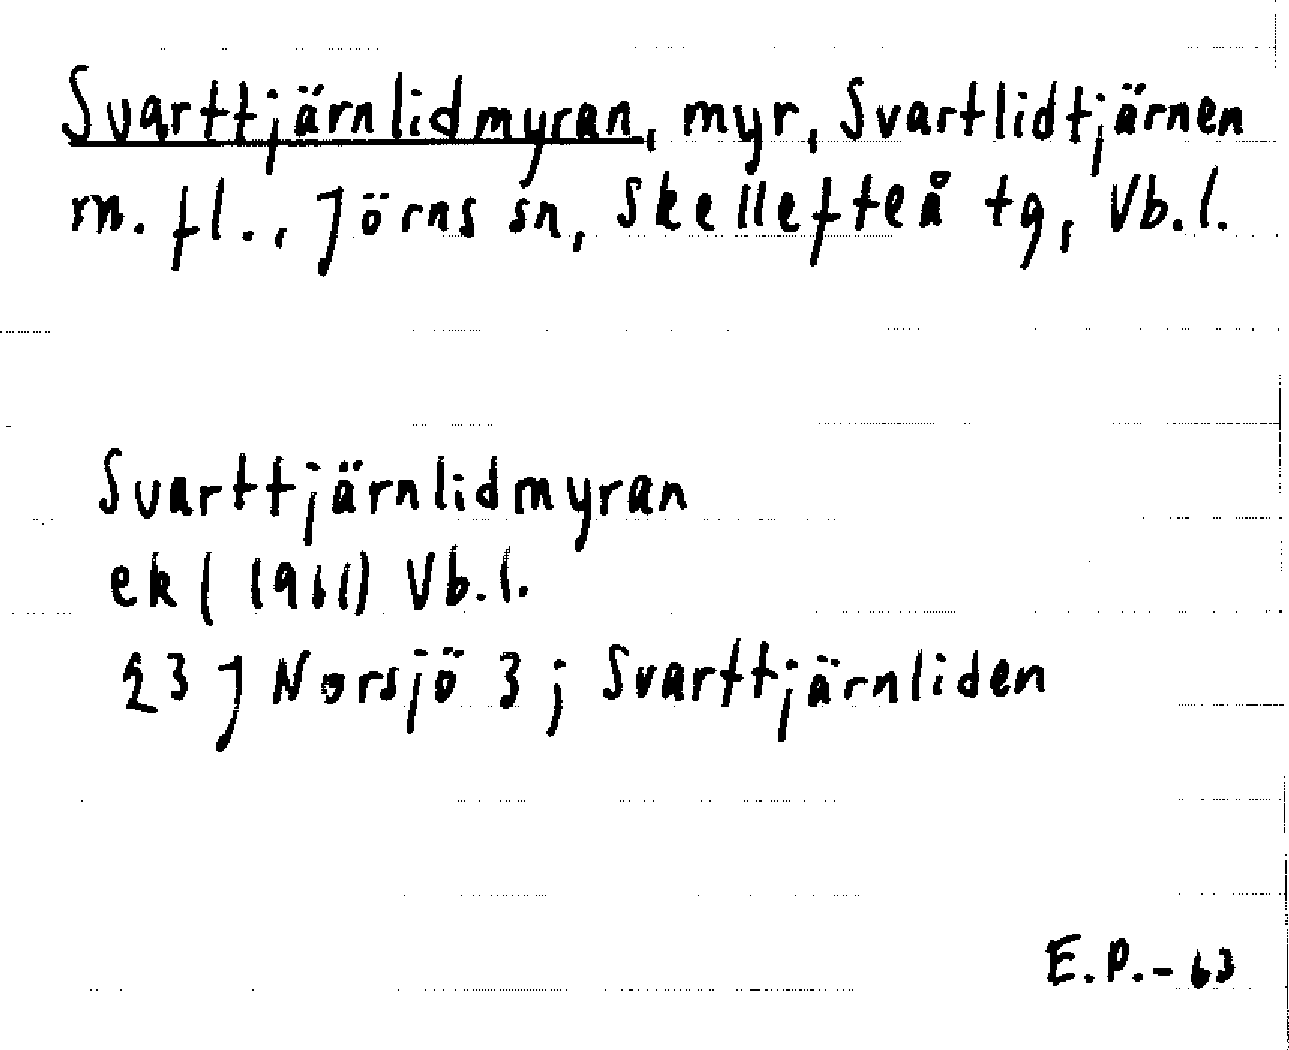 Svarttjärnlidmyran, myr, Svartlidtjärnen
m. fl., Jörns sn, Skellefteå tg, Vb. l.
Svarttjärnlidmyran
ek (1961) Vb. l.
23 J Norsjö 3 j Svarttjärnliden
E.P.-63